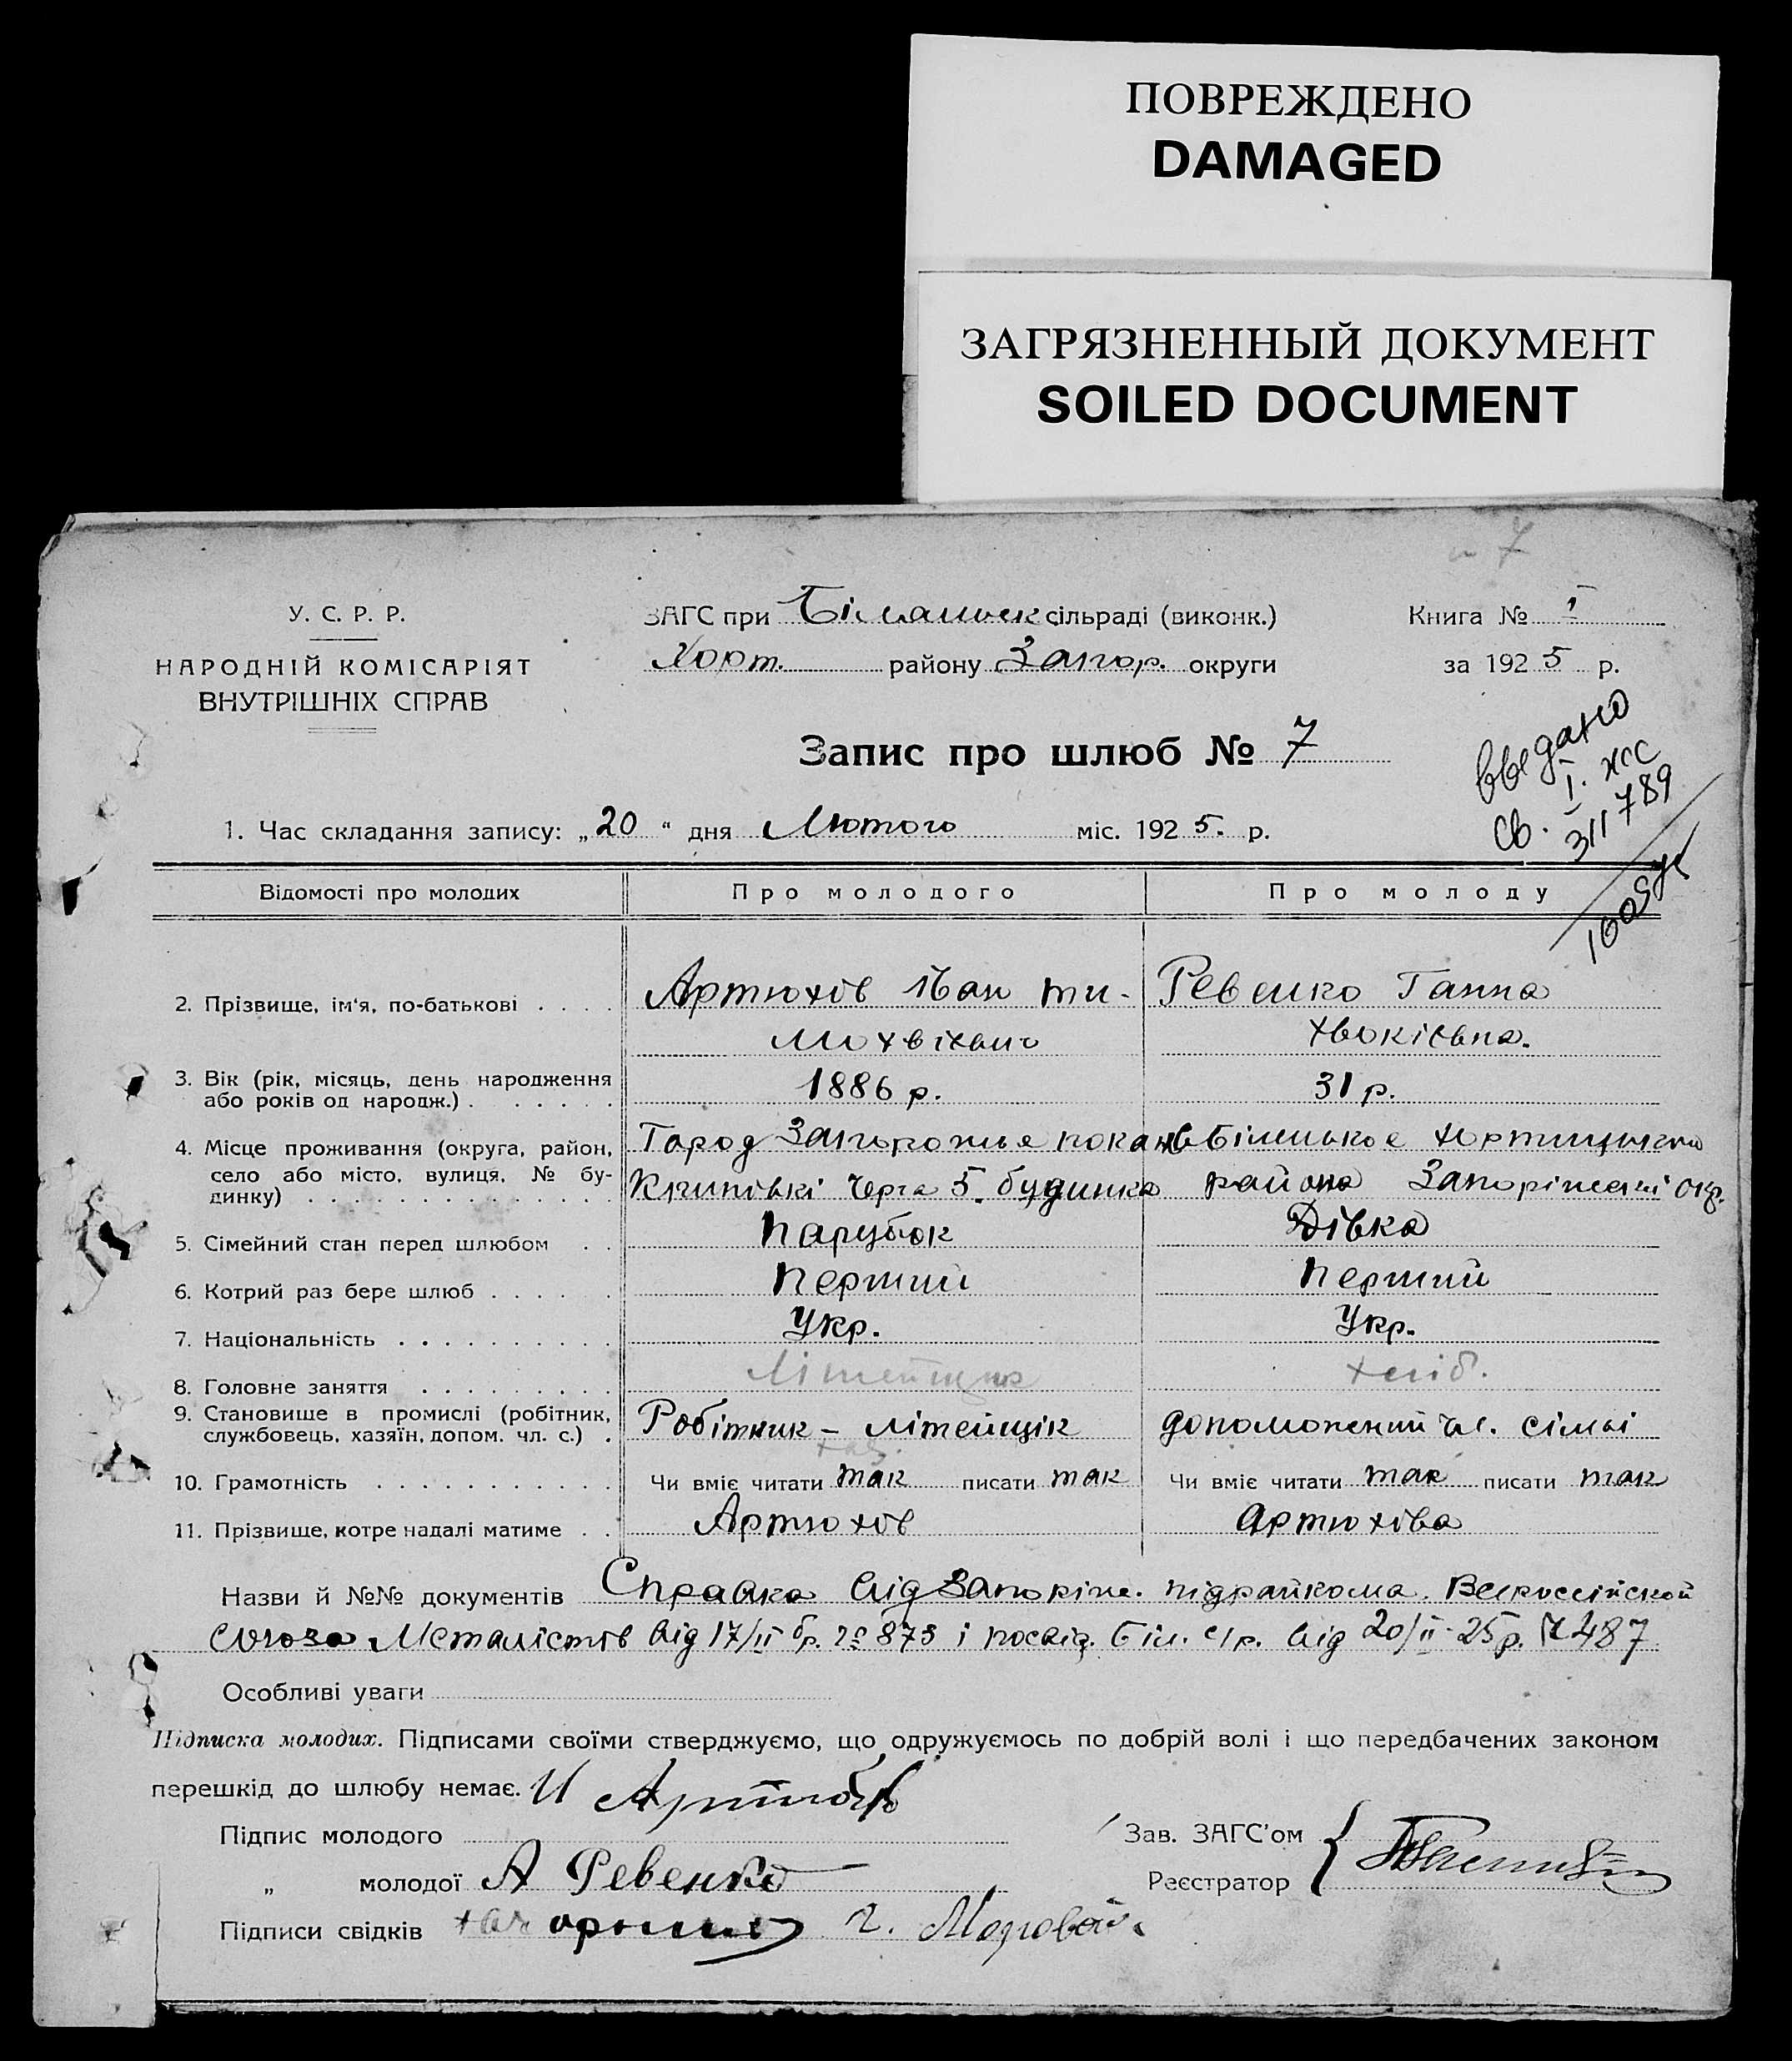 ПОВРЕЖДЕНО
DAMAGED
ЗАГРЯЗНЕННЫЙ ДОКУМЕНТ
SOILED DOCUMENT
7
У. С. Р. Р.
НАРОДНІЙ КОМІСАРІЯТ
ВНУТРІШНІХ СПРАВ
ЗАГС при Біленьск сільраді (виконк.)
Хорт. району Запор. округи
Книга № I
за 1925 р.
Запис про шлюб № 7
выдано
I. жс
св. 311789
1. Час складання запису: „20“ дня Лютого міс. 1925. р.
Відомості про молодих Про молодого Про молоду
2. Прізвище, ім'я, по-батькові . . . . Артюхов Іван Ти- Ревенко Ганна
мохвієвич Хвокієвна.
3. Вік (рік, місяць, день народження або років од народж.) . . . . . . 1886 р. 31 р.
4. Місце проживання (округа, район, село або місто, вулиця, № будинку) . . . . Город Запорожья
Черга 5. будинка
Біленькое Хортицького
района Запоріжскі окр.
5. Сімейний стан перед шлюбом . . Парубок Дівка
6. Котрий раз бере шлюб . . . . . . Перший Перший
7. Національність . . . . . . . . . . Укр. Укр.
8. Головне заняття . . . . . . . . . Літейщик хліб.
9. Становище в промислі (робітник, службовець, хазяїн, допом. чл. с.) . Робітник – літейщік допоможений чл. сімьі
10. Грамотність . . . . . . . . . . . Чи вміє читати так писати так Чи вміє читати так писати так
11. Прізвище, котре надалі матиме . . Артюхов Артюхова
Назви й №№ документів Справка від Запоріж. підрайкома. Всеросейской
Союза Металістів від 17/II бр. № 873 і посвід. Біл. с/р. від 20/II-25р. № 487
Особливі уваги
Підписка молодих. Підписами своїми стверджуємо, що одружуємось по добрій волі і що передбачених законом
перешкід до шлюбу немає.
Підпис молодого И Артюхов
Зав. ЗАГС'ом
„ молодої А Ревенко
Реєстратор
Підписи свідків Г. Мозговой